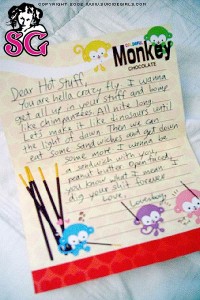 COPYRIGHT 2002 WWW.SUICIDEGIRLS.COM
SG
Monkey
CHOCOLATE
Dear Hot Stuff,
You are hella crazy fly. I wanna
get all up in your stuff and bump
like chimpanzees. All nite long
Lets make it like dinosaurs until
the light of dawn. Then we can
eat some Sandwiches and get down
some more. I wanna be
a sandwich with you
peanut butter. Open faced
you know what I mean. I
dig your shit forever
Love,